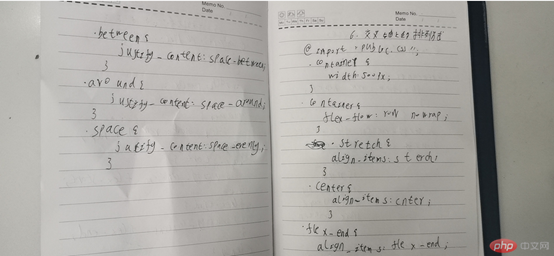 Memo No.
Date
.between{
justify-content:space-between;
}
.around{
justify-content:space-around;
}
.space{
justify-content:space-evenly;
}
Memo No.
Date
Mo Tu We Th Fr Sa Su
6.
@import
.container{
width:500px;
}
.container{
flex-flow:row nowrap;
}
.stretch{
align-items:sterch;
}
.center{
align-items:cnter;
}
.flex-end{
align-items:flex-end;
php 中文网